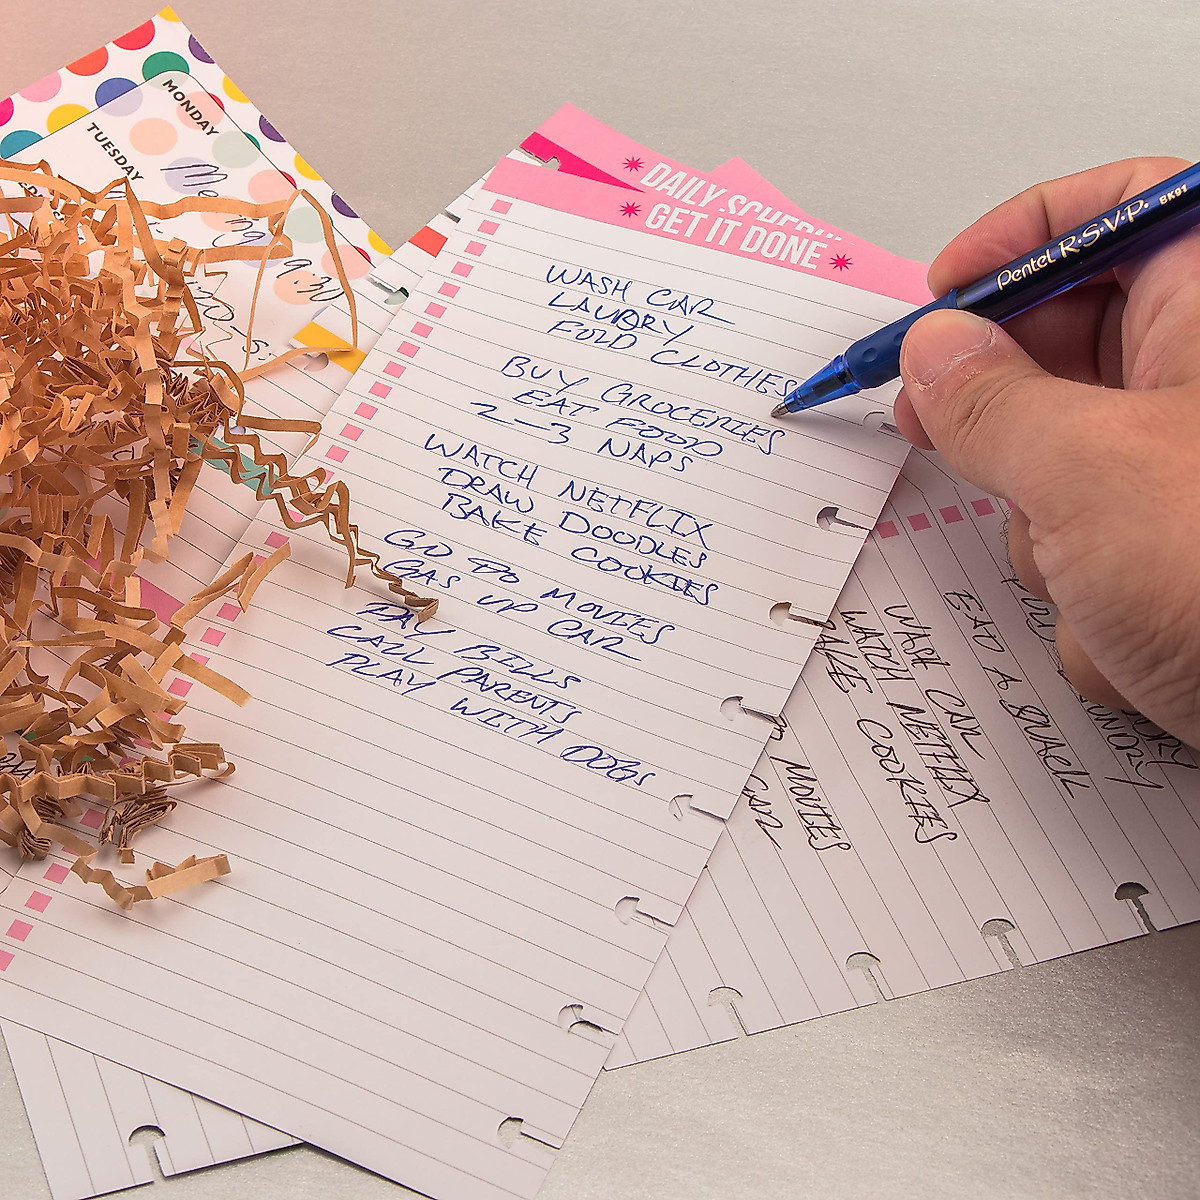 MONDAY
TUESDAY
DAILY SCHEDUL
GET IT DONE
Pentel R.S.V.P. BK91
WASH CAR
LAUNDRY
FOLD CLOTHES
BUY GROCERIES
EAT FOOD
2-3 NAPS
WATCH NETFLIX
DRAW DOODLES
BAKE COOKIES
GO TO MOVIES
GAS UP CAR
PAY BILLS
CALL PARENTS
PLAY WITH DOGS
EAT A SNACK
WASH CAR
WATCH NETFLIX
BAKE COOKIES
MOVIES
CAR